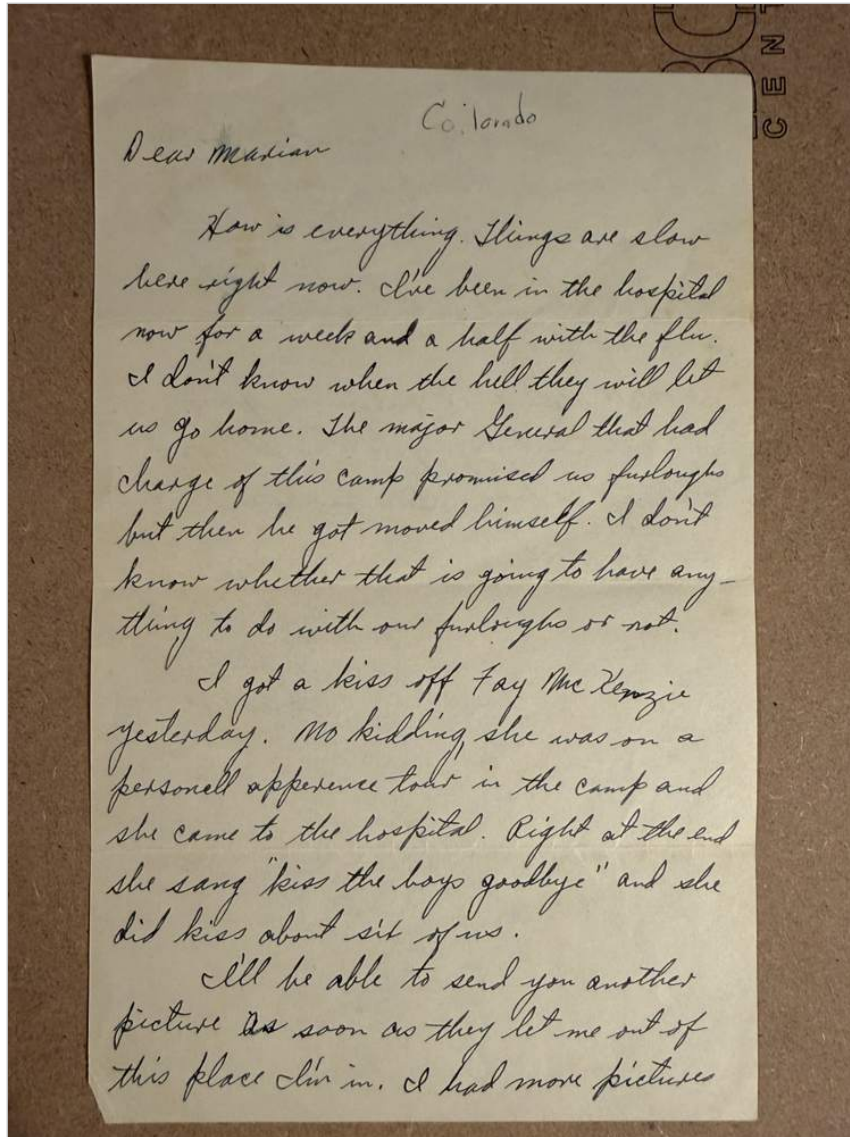 CENT
Colorado
Dear Marian
How is everything. Things are slow
here right now. I've been in the hospital
now for a week and a half with the flu.
I don't know when the hell they will let
us go home. The major General that had
charge of this camp promised us furloughs
but then he got moved himself. I don't
know whether that is going to have any-
thing to do with our furloughs or not.
I got a kiss off Fay McKenzie
yesterday. No kidding, she was on a
personell apperence tour in the camp and
she came to the hospital. Right at the end
she sang "kiss the boys goodbye" and she
did kiss about six of us.
I'll be able to send you another
picture as soon as they let me out of
this place I'm in. I had more pictures